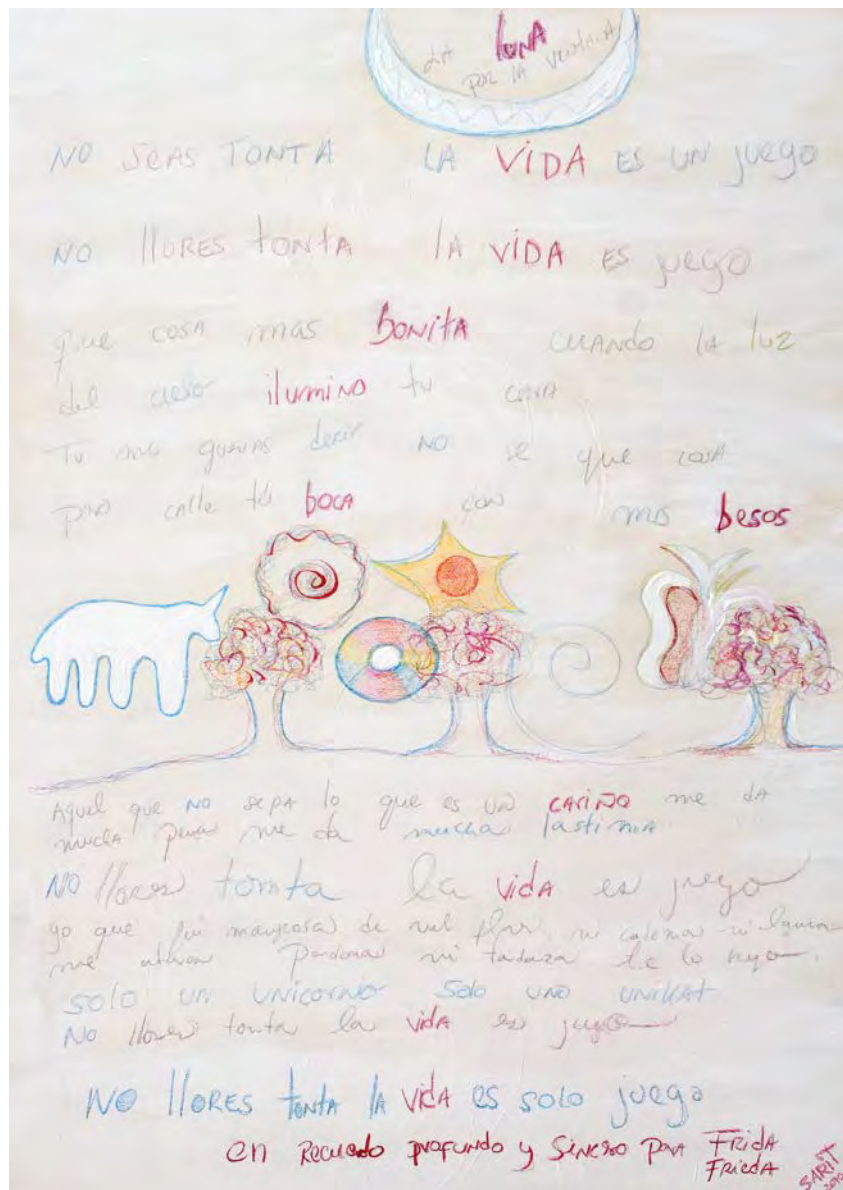 LA LUNA
POR LA VENTANA
NO SEAS TONTA LA VIDA ES UN juego
NO llORES tonta lA VIDA ES juego
que cosa mas BONitA CUANDO lA luz
del cielo ilumiNO tu
Tu me decir NO se que cosA
calle tu bocA con mis besos
Aquel que NO sepA lo que es un cariÑo me dA
muchA pena me da mucha lastimA
NO llores tonta la vida es juego
yo que fui de mil ni cadena ni
me Perdona mi te lo
solo un UNicorNo solo uno UNikAt
No llores tonta la vidA es juego
NO llORES tontA lA VidA es solo juego
en Recuerdo profundo y SiNcero PARA FRidA
FRiedA
SARIT